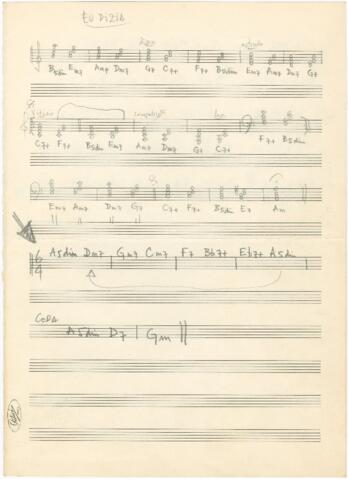 EU DIZIA
B5dim Em7 Am7 Dm7 G7 C7+ F7+ B5dim Em7 Am7 Dm7 G7
C7+ F7+ B5dim Em7 Am7 Dm7 G7 C7+ F7+ B5dim
Em7 Am7 Dm7 G7 C7+ F7+ B5dim E7 Am
6/4 A5dim Dm7 | Gm7 Cm7 | F7 Bb7+ | Eb7+ A5dim
CODA
A5dim D7 | Gm ||